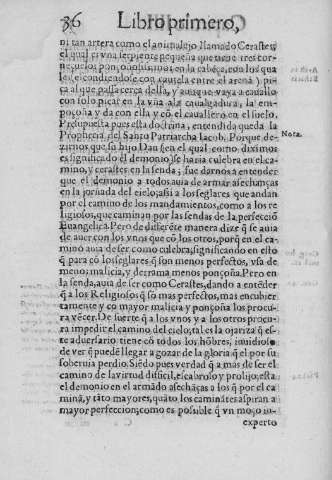 36 Libro primero,
ni tan artera como el animalejo llamado Cerastes,
el qual es vna serpiente pequeña que tiene tres cor-
neçuelos ponçoñosissimos en la cabeça, con los qua
les (escondiendose con cautela entre el arena) pi-
ca al que passa cerca della, y aunque vaya a cauallo
con solo picar en la vña a la caualgadura, la em-
poçoña y da con ella y cō el cauallero en el suelo.
Presupuesta pues esta doctrina, entendida queda la
Prophecia del Santo Patriarcha Iacob. Porque de-
Nota.
zirnos que su hijo Dan (en el qual como diximos
es significado el demonio) se hauia culebra en el ca-
mino, y cerastes en la senda; fue darnos a entender
que el demonio a todos auia de armar asechanças
en la jornada del cielo, assi a los seglares que andan
por el camino de los mandamientos, como a los re
ligiosos, que caminan por las sendas de la perfeccio
Euangelica. Pero de differēte manera dize q̄ se auia
de auer con los vnos que cō los otros, porq̄ en el ca-
mino auia de ser como culebra, significando en esto
q̄ para cō los seglares q̄ son menos perfectos, vsa de
menos malicia, y derrama menos ponçoña. Pero en
la senda, auia de ser como Cerastes, dando a entēder
q̄ a los Religiosos q̄ sō mas perfectos, mas encubier
tamente y cō mayor malicia y ponçoña los procu-
ra vēcer. De suerte q̄ a los vnos y a los otros procu-
ra impedir el camino del cielo, tal es la ojariza q̄ es-
te aduersario tiene cō todos los hōbres, inuidioso
de ver q̄ puedē llegar a gozar de la gloria q̄ el por su
soberuia perdio. Siēdo pues verdad q̄ a mas de ser el
camino de la virtud difficil, escabroso y prolijo, esta
el demonio en el armādo asechāças a los q̄ por el ca
minā, y tāto mayores, quāto los caminātes aspiran a
mayor perfeccion; como es posible q̄ vn moço in-
experto